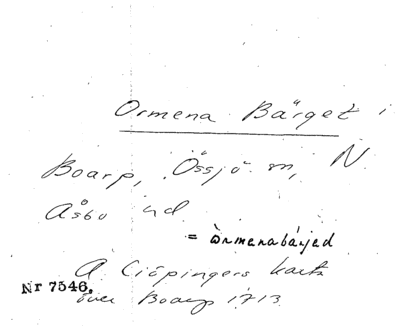 Ormena Bärget i
Boarp, Össjö sn, N.
Åsbo hd
= òrmenabárjed
A Ciöpingers karta
Nr 7546.
över Boarp 1713